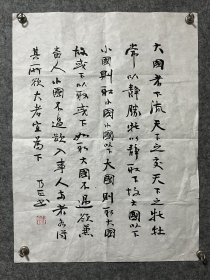 大國者下流天下之交天下之牝牡
常以靜勝牡以靜為下故大國以下
小國則取小國小國以下大國則取大國
故或下以取或下而取大國不過欲兼
畜人小國不過欲入事人夫兩者各得
其所欲大者宜為下